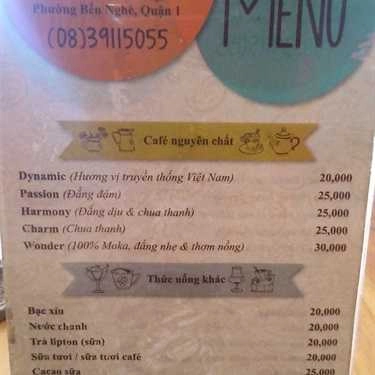 Phường Bến Nghé, Quận 1
(08)39115055
MENU
Café nguyên chất
Dynamic (Hương vị truyền thống Việt Nam) 20,000
Passion (Đắng đậm) 25,000
Harmony (Đắng dịu & chua thanh) 25,000
Charm (Chua thanh) 25,000
Wonder (100% Moka, đắng nhẹ & thơm nồng) 30,000
Thức uống khác
Bạc xíu 20,000
Nước chanh 20,000
Trà lipton (sữa) 20,000
Sữa tươi / sữa tươi café 20,000
Cacao sữa 25,000